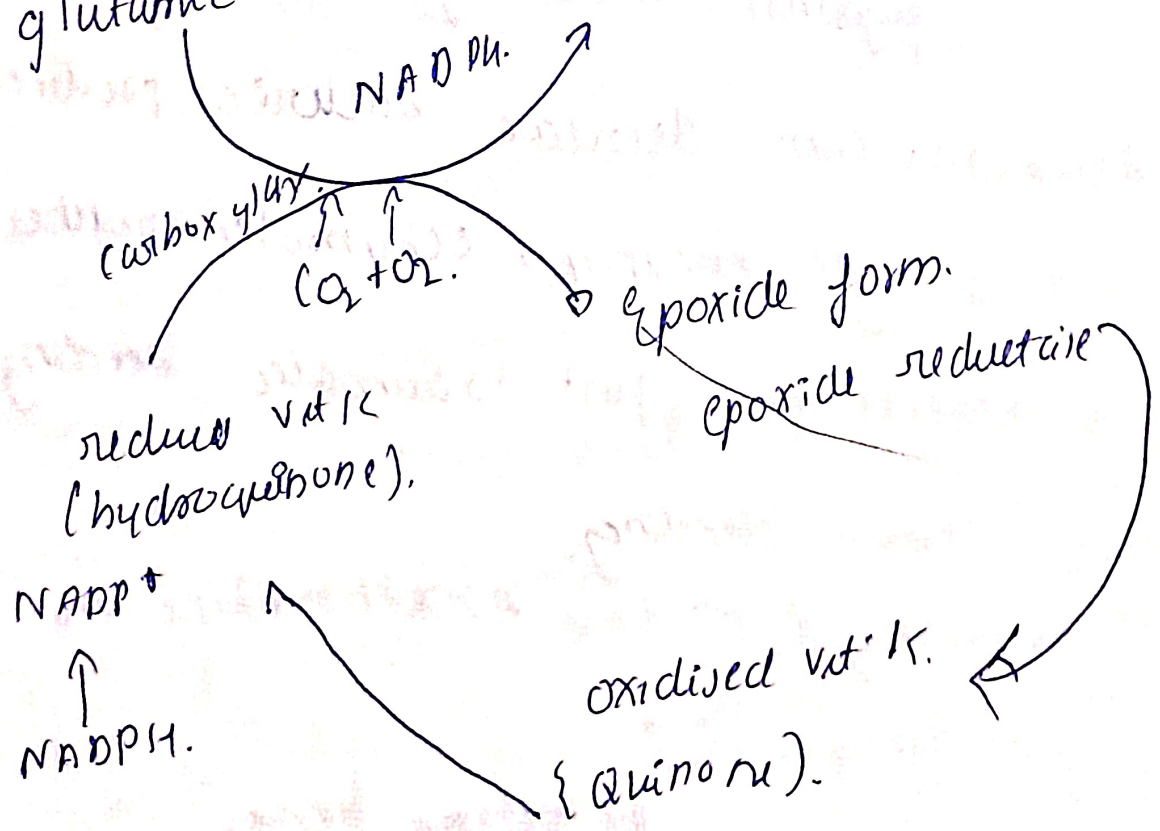 NADPH.
carboxylax.
CO2 + O2.
Epoxide form.
epoxide reductase
reduces vit K
(hydroquinone).
NADP+
NADPH.
oxidised vit. K.
{ Quinone).